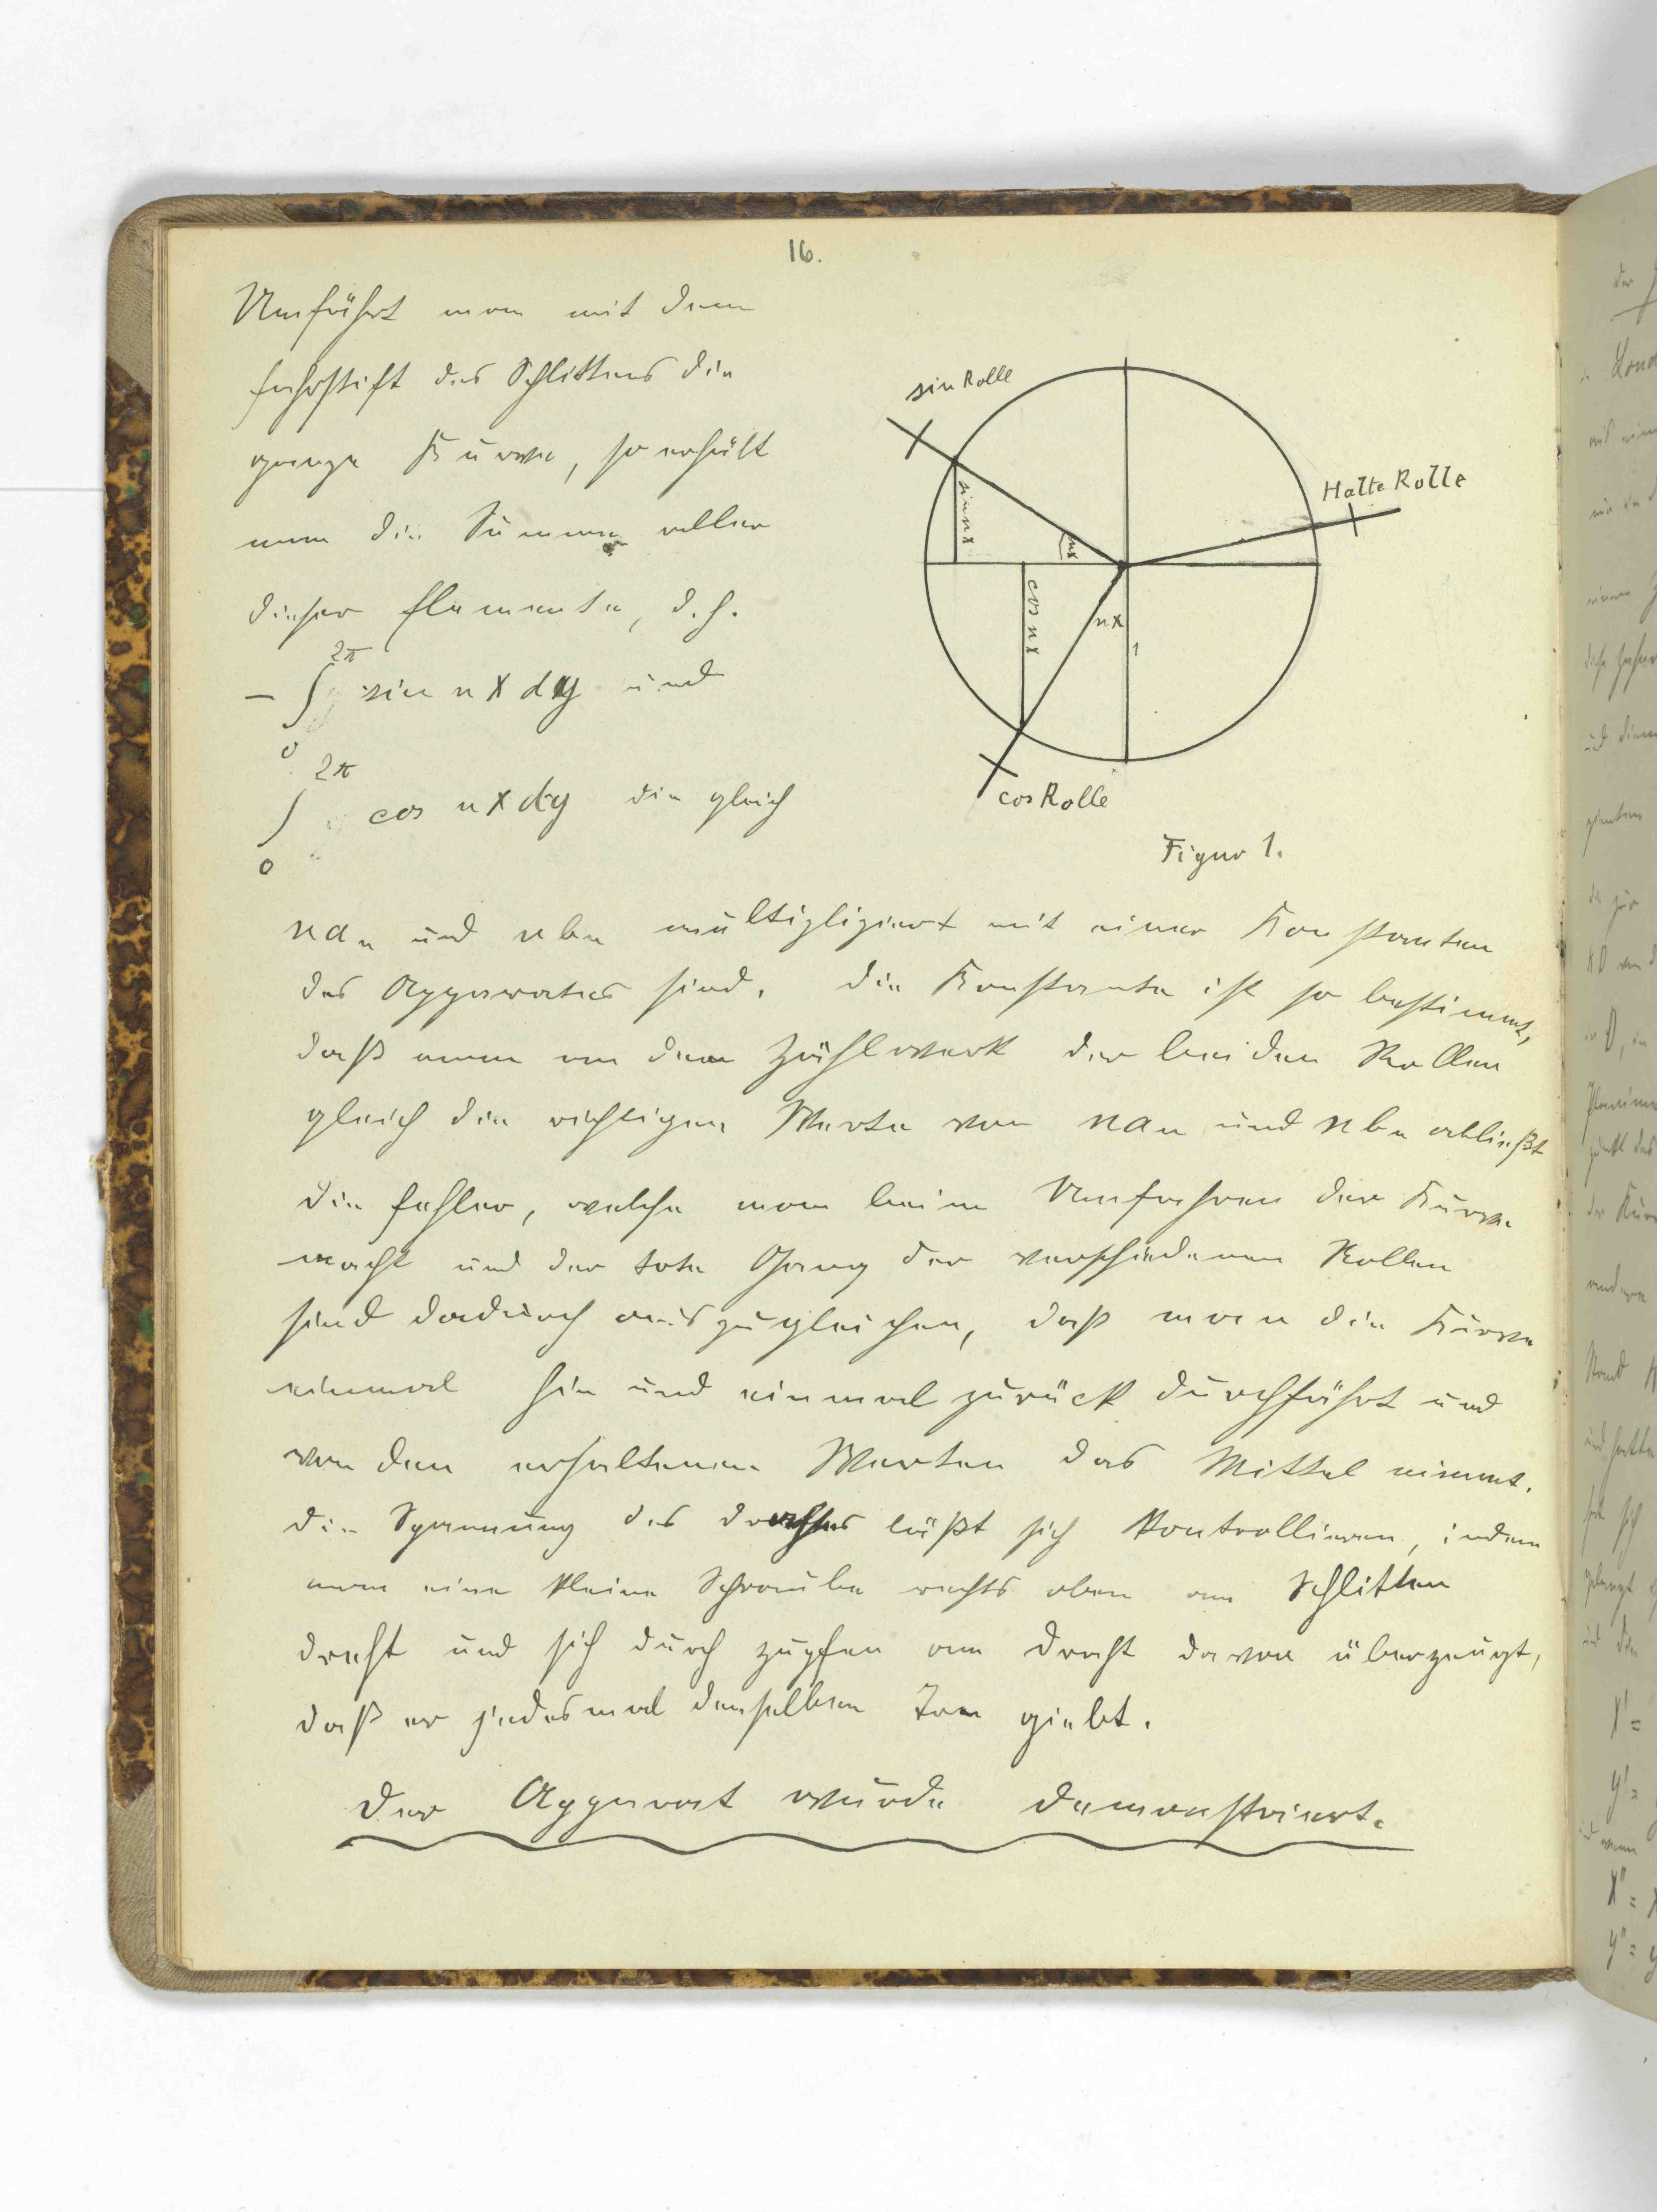 16.
Umfährt man mit dem
Fahrstift des Schlittens die
ganze Kurve, so erhält
man die Summe aller
dieser Elemente, d.h.
− ∫₀^2π sin nx dy und
∫₀^2π cos nx dy die gleich
sin Rolle
Halte Rolle
sin nx
nx
cos nx
nx
1
cos Rolle
Figur 1.
nan und nbn multipliziert mit einer Konstanten
des Apparates sind. Die Konstante ist so bestimmt,
daß man an dem Zählwerk der beiden Rollen
gleich die richtigen Werte von nan und nbn abließt
Die Fehler, welche man beim Umfahren der Kurve
macht und der tote Gang der verschiedenen Rollen
sind dadurch auszugleichen, daß man die Kurve
einmal hin und einmal zurück durchfährt und
von den erhaltenen Werten das Mittel nimmt.
Die Spannung des Drahtes läßt sich kontrollieren, indem
man eine kleine Schraube rechts oben am Schlitten
dreht und sich durch zupfen am Draht davon überzeugt,
daß er jedesmal denselben Ton giebt.
Der Apparat wurde demonstriert.